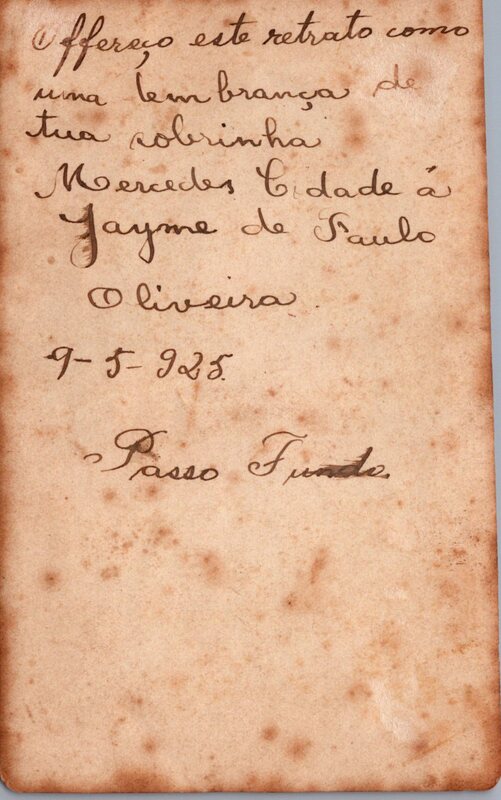 Offereço este retrato como
uma lembrança de
tua sobrinha
Mercedes Cidade á
Jayme de Paulo
Oliveira.
9-5-925.
Passo Fundo.